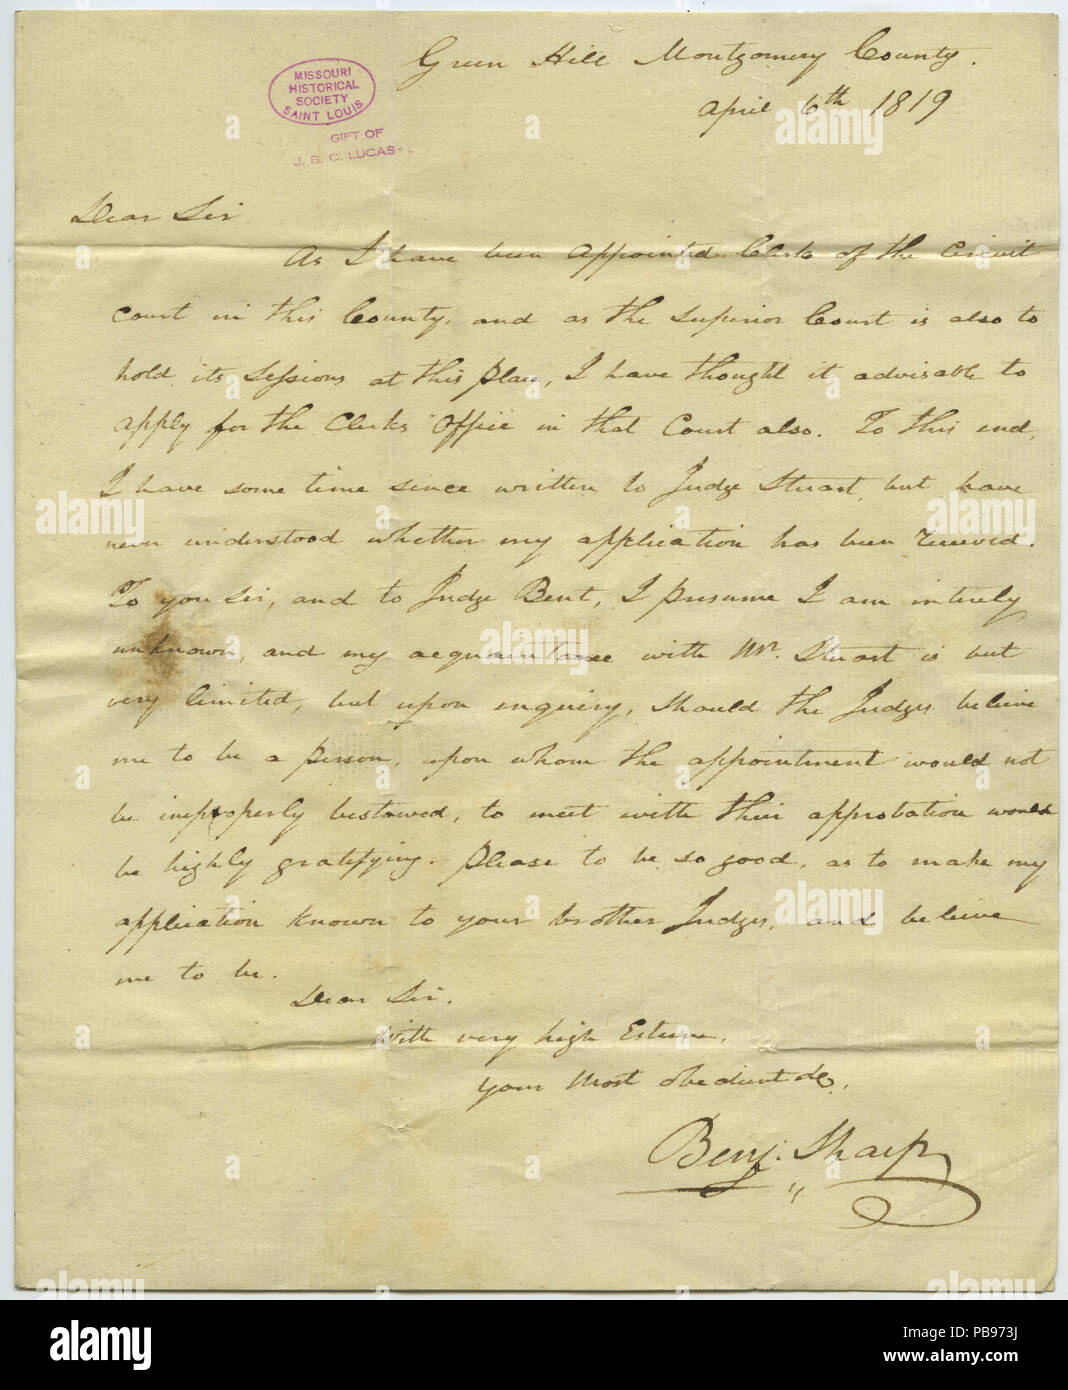 Green Hill Montgomery County.
April 6th 1819
MISSOURI
HISTORICAL
SOCIETY
SAINT LOUIS
GIFT OF
J. B. C. LUCAS
Dear Sir
As I have been appointed Clerk of the Circuit
court in this County, and as the Superior Court is also to
hold its Sessions at this place, I have thought it advisable to
apply for the Clerks Office in that Court also. To this end,
I have some time since written to Judge Stuart, but have
never understood whether my application has been received.
To you Sir, and to Judge Bent, I presume I am intirely
unknown, and my acquaintance with Mr. Stuart is but
very limited, but upon enquiry, should the Judges believe
me to be a person, upon whom the appointment would not
be improperly bestowed, to meet with their approbation would
be highly gratifying. Please to be so good, as to make my
application known to your brother Judges, and believe
me to be.
Dear Sir,
With very high Esteem,
your Most obedient &c.
Benj. Sharp
alamy stock photo
alamy
Image ID: PB973J
www.alamy.com